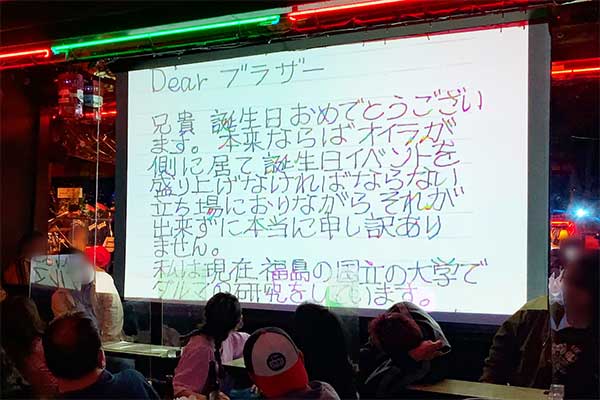 Dear ブラザー
兄貴 誕生日おめでとうござい
ます。本来ならばオイラが
側に居て誕生日イベントを
盛り上げなければならない
立ち場におりながら それが
出来ずに本当に申し訳あり
ません。
私は現在 福島の国立の大学で
ダルマの研究をしています。